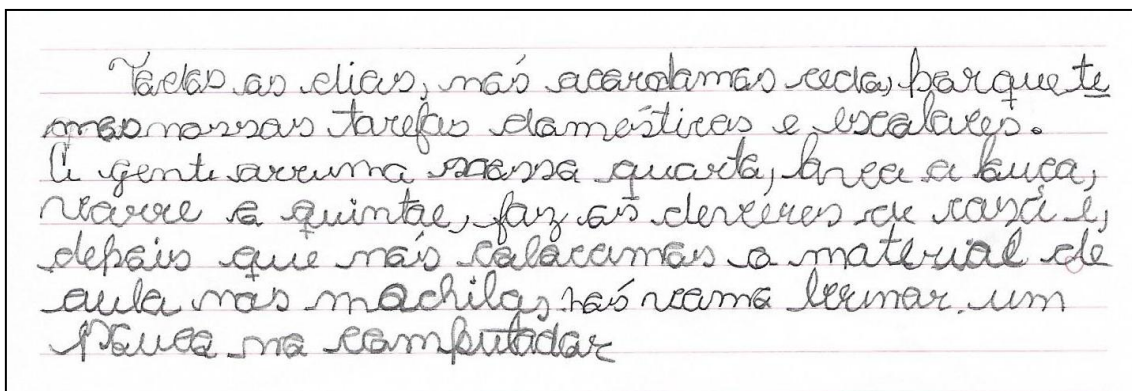 Todos os dias, nós acordamos cedo, porque te
mos nossas tarefas domésticas e escolares.
A gente arruma nossa quarto, lava a louça,
varre o quintal, faz os deveres de casa e,
depois que nós colocamos o material de
aula nas mochilas, nós vamo brincar um
pouco no computador